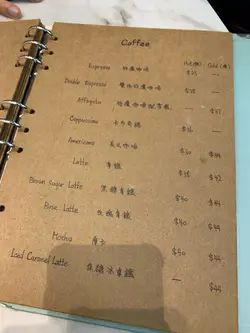 Coffee
Hot(熱) Cold(凍)
Espresso 特濃咖啡 $25 —
Double Espresso 雙倍特濃咖啡 —
Affogato 特濃咖啡配雪糕 — $37
Cappuccino 卡布奇諾 $36
Americano 美式咖啡 $30
Latte 拿鐵 $38 $42
Brown Sugar Latte 黑糖拿鐵 $40 $44
Rose Latte 玫瑰拿鐵 $40 $44
Mocha 摩卡 $40 $44
Iced Caramel Latte 焦糖冰拿鐵 — $44